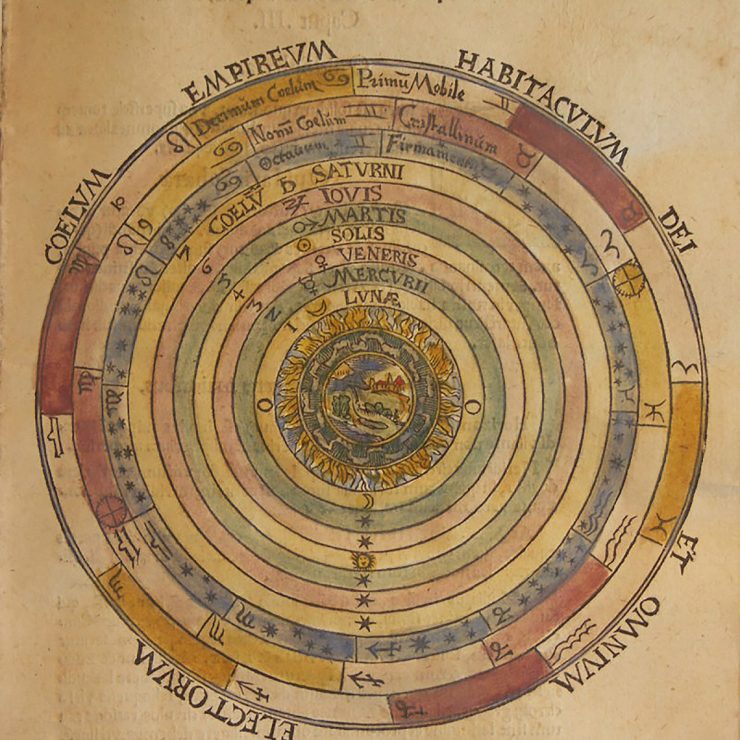 COELVM EMPIREVM HABITACVLVM DEI ET OMNIVM ELECTORVM
10 Decimum Coelum Primũ Mobile
9 Nonũ Coelum Cristallinum
8 Octauum Firmamentum
7 COELṼ ♄ SATVRNI
6 ♃ IOVIS
5 ♂ MARTIS
4 ☉ SOLIS
3 ♀ VENERIS
2 ☿ MERCVRII
1 ☽ LVNÆ